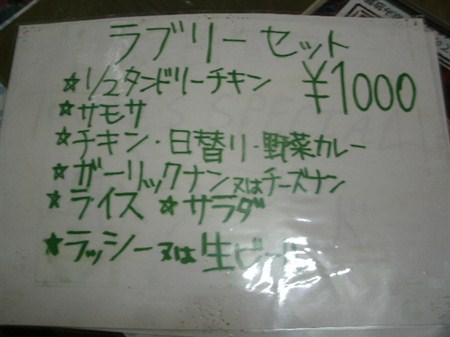 ラブリーセット
☆ リュタンドリーチキン ¥1000
☆ サモサ
☆ チキン・日替り・野菜カレー
☆ ガーリックナン又はチーズナン
☆ ライス ☆ サラダ
☆ ラッシー又は生ビール